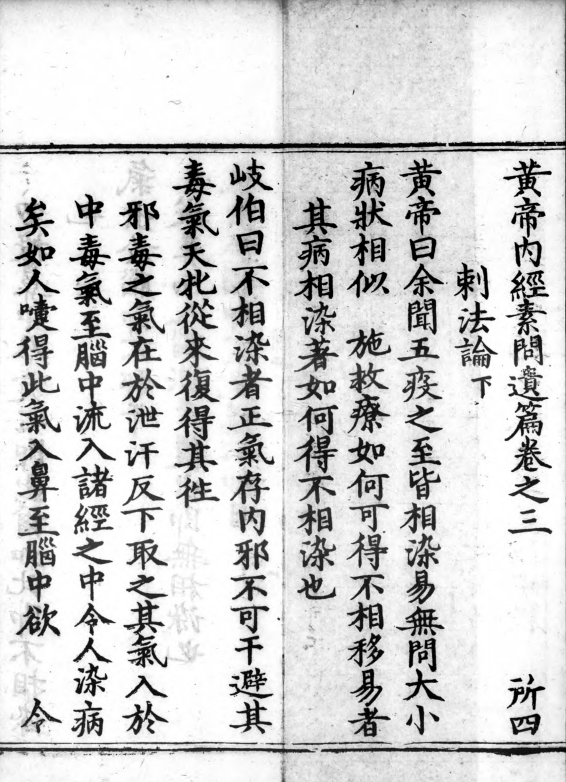 黄帝内經素問遺篇卷之三 所四
刺法論下
黄帝曰余聞五疫之至皆相染易無問大小
病狀相似 施救療如何可得不相移易者
其病相染著如何得不相染也
岐伯曰不相染者正氣存内邪不可干避其
毒氣天牝從來復得其徃
邪毒之氣在於泄汗反下取之其氣入於
中毒氣至腦中流入諸經之中令人染病
矣如人嚔得此氣入鼻至腦中欲 令